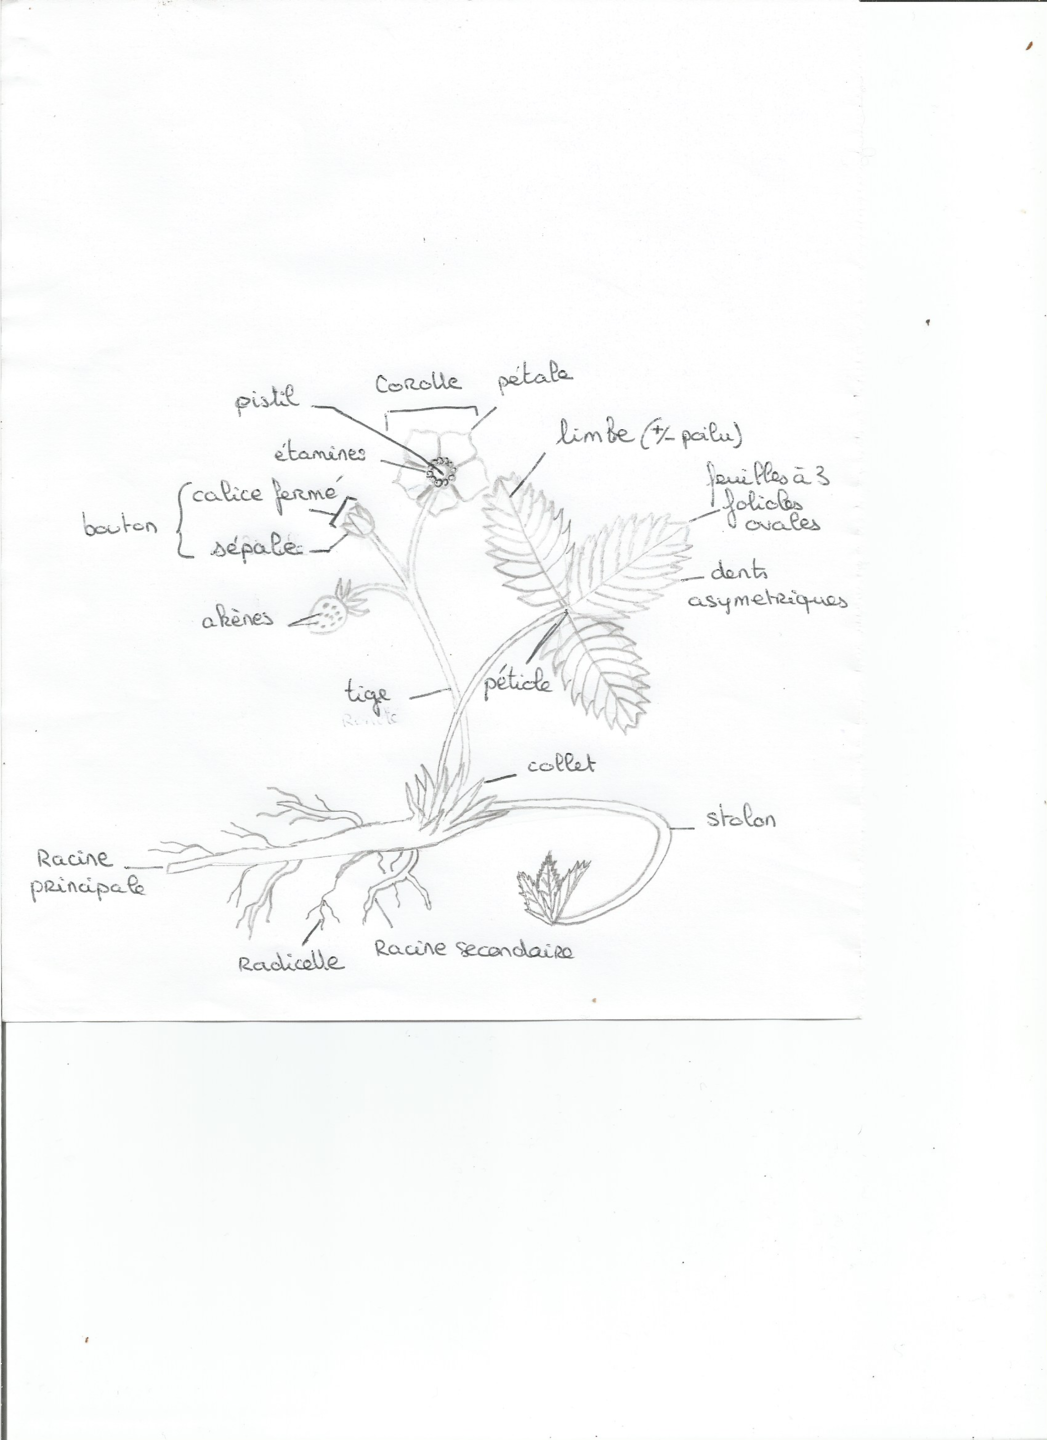 Corolle
pétale
pistil
limbe (+/- poilu)
étamines
feuilles à 3
folioles
ovales
calice fermé
bouton
sépale
dents
asymetriques
akènes
pétiole
tige
collet
stolon
Racine
principale
Racine secondaire
Radicelle